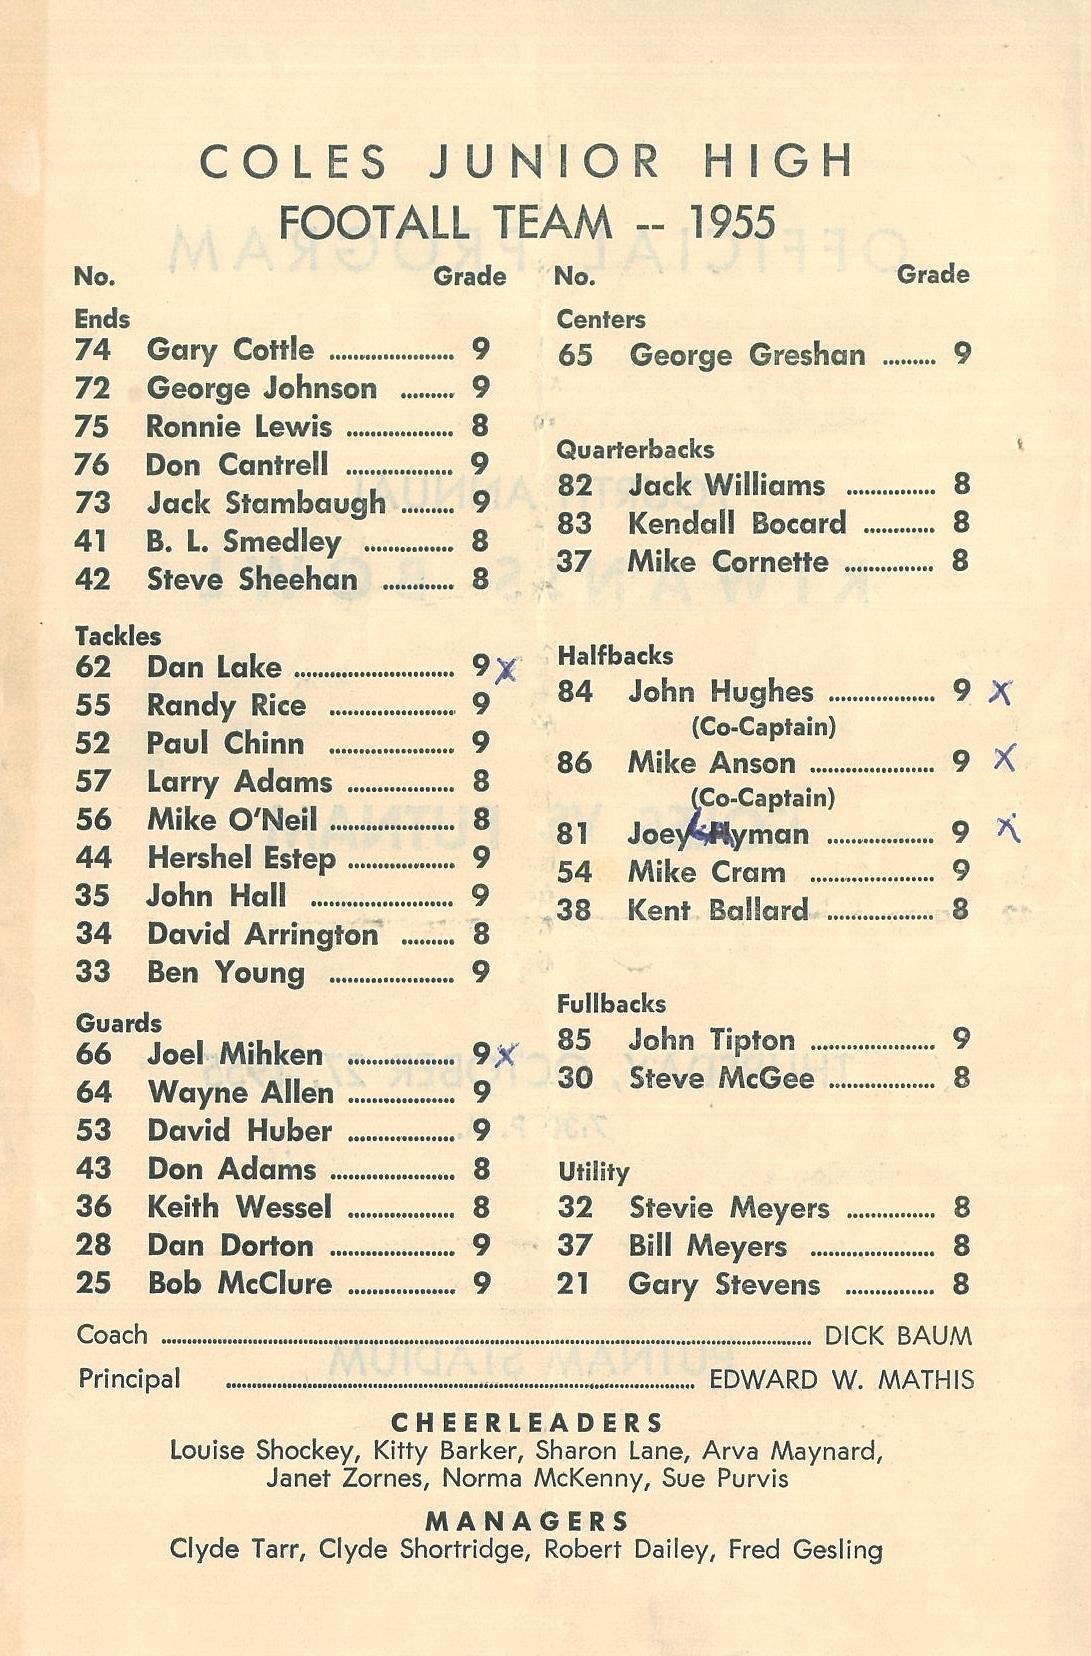 COLES JUNIOR HIGH
FOOTALL TEAM -- 1955
No. Grade
Ends
74 Gary Cottle ..................... 9
72 George Johnson ......... 9
75 Ronnie Lewis .................. 8
76 Don Cantrell .................. 9
73 Jack Stambaugh ......... 9
41 B. L. Smedley ............... 8
42 Steve Sheehan ............ 8
Tackles
62 Dan Lake ........................... 9 x
55 Randy Rice ..................... 9
52 Paul Chinn ..................... 9
57 Larry Adams .................. 8
56 Mike O'Neil ..................... 8
44 Hershel Estep .................. 9
35 John Hall ........................ 9
34 David Arrington ......... 8
33 Ben Young ..................... 9
Guards
66 Joel Mihken .................. 9 x
64 Wayne Allen .................. 9
53 David Huber .................. 9
43 Don Adams ..................... 8
36 Keith Wessel .................. 8
28 Dan Dorton ..................... 9
25 Bob McClure .................. 9
No. Grade
Centers
65 George Greshan ......... 9
Quarterbacks
82 Jack Williams ............... 8
83 Kendall Bocard ............ 8
37 Mike Cornette ............... 8
Halfbacks
84 John Hughes .................. 9 x
(Co-Captain)
86 Mike Anson ..................... 9 x
(Co-Captain)
81 Joey Hyman .................. 9 x
54 Mike Cram ..................... 9
38 Kent Ballard .................. 8
Fullbacks
85 John Tipton ..................... 9
30 Steve McGee .................. 8
Utility
32 Stevie Meyers ............... 8
37 Bill Meyers ..................... 8
21 Gary Stevens ............... 8
Coach ........................................ DICK BAUM
Principal ........................................ EDWARD W. MATHIS
CHEERLEADERS
Louise Shockey, Kitty Barker, Sharon Lane, Arva Maynard,
Janet Zornes, Norma McKenny, Sue Purvis
MANAGERS
Clyde Tarr, Clyde Shortridge, Robert Dailey, Fred Gesling